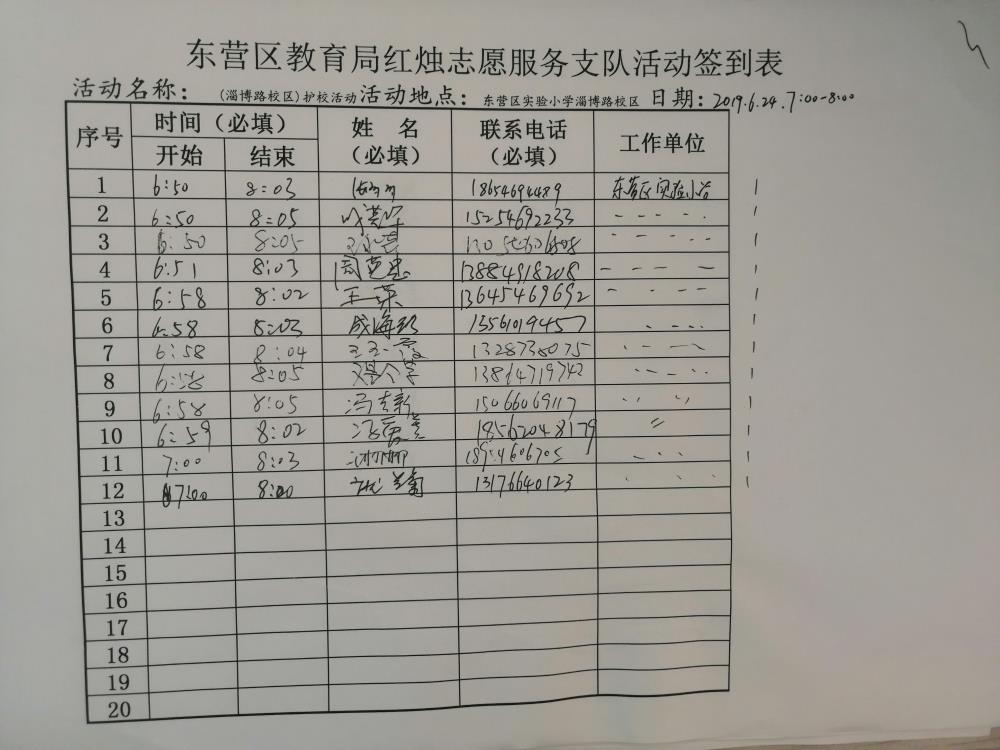 东营区教育局红烛志愿服务支队活动签到表
活动名称：（淄博路校区）护校活动 活动地点：东营区实验小学淄博路校区 日期：2019.6.24.7:00-8:00
序号 时间（必填） 姓名（必填） 联系电话（必填） 工作单位
开始 结束
1 6:50 8:03 18654694489 东营区实验小学
2 6:50 8:05 15254692233
3 6:50 8:05
4 6:51 8:03 周 13884918208
5 6:58 8:02 王英 13645469692
6 6:58 8:03 成海 13561019457
7 6:58 8:04 王 1328738075
8 6:58 8:05
9 6:58 8:05 冯 15066069117
10 6:59 8:02 冯 18562048179 〃
11 7:00 8:03
12 7:00 8:00 兰菊 13176640123
13
14
15
16
17
18
19
20